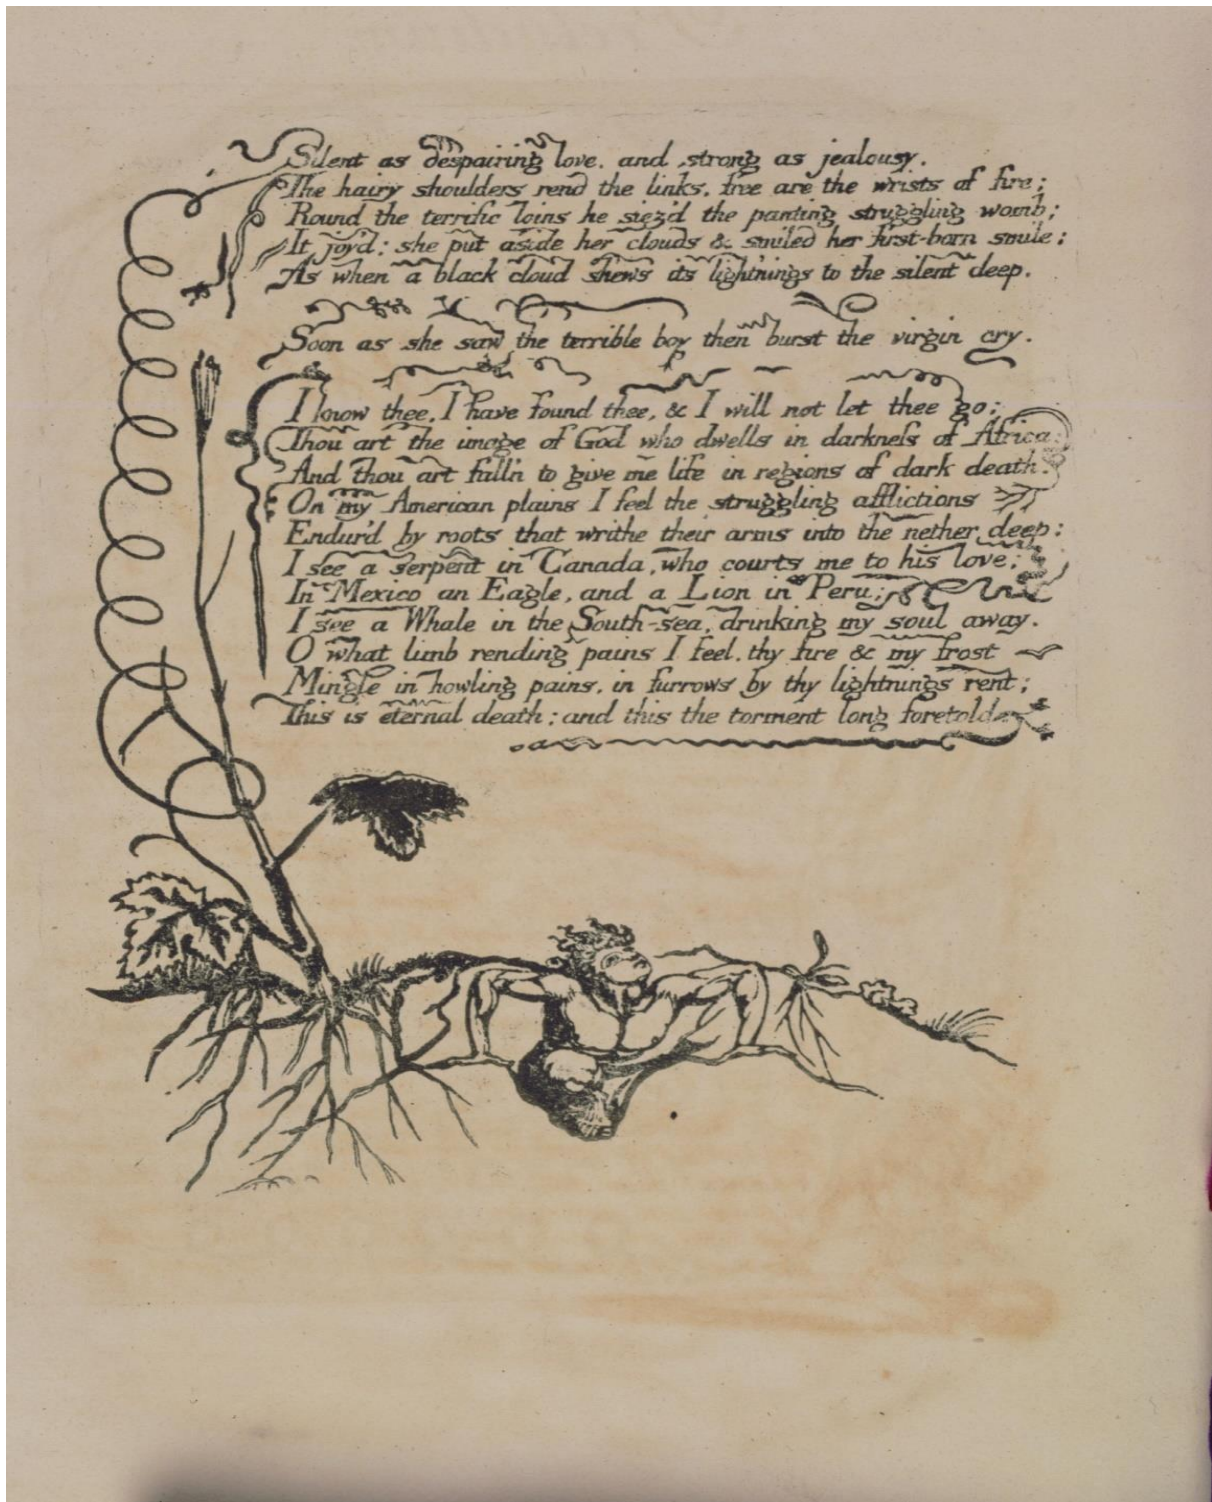 Silent as despairing love, and strong as jealousy.
The hairy shoulders rend the links, free are the wrists of fire;
Round the terrific loins he siez'd the panting struggling womb;
It joy'd: she put aside her clouds & smiled her first-born smile;
As when a black cloud shews its lightnings to the silent deep.
Soon as she saw the terrible boy then burst the virgin cry.
I know thee, I have found thee, & I will not let thee go;
Thou art the image of God who dwells in darkneſs of Africa;
And thou art fall'n to give me life in regions of dark death.
On my American plains I feel the struggling afflictions
Endur'd by roots that writhe their arms into the nether deep:
I see a serpent in Canada, who courts me to his love;
In Mexico an Eagle, and a Lion in Peru;
I see a Whale in the South-sea, drinking my soul away.
O what limb rending pains I feel. thy fire & my frost
Mingle in howling pains, in furrows by thy lightnings rent;
This is eternal death; and this the torment long foretold